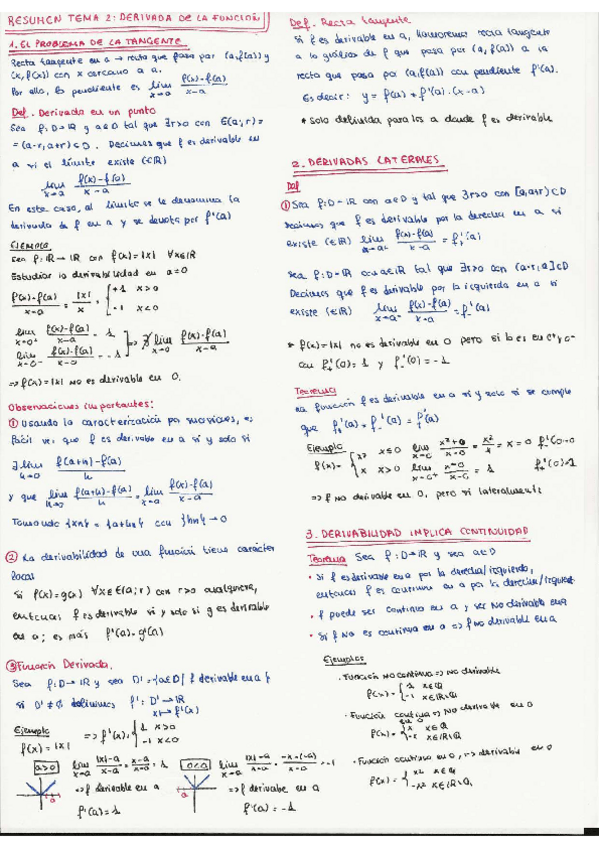 RESUMEN TEMA 2: DERIVADA DE LA FUNCIÓN
1. EL PROBLEMA DE LA TANGENTE
Recta tangente en a → recta que pasa por (a, f(a)) y
(x, f(x)) con x cercano a a.
Por ello, la pendiente es lim x→a f(x)-f(a) / x-a
Def. Derivada en un punto
Sea f: D→ℝ y a∈D tal que ∃r>0 con E(a;r)=
=(a-r, a+r)⊂D. Decimos que f es derivable en
a si el límite existe (∈ℝ)
lim x→a f(x)-f(a) / x-a
En este caso, al límite se le denomina la
derivada de f en a y se denota por f'(a)
Ejemplo
Sea f: ℝ→ℝ con f(x)=|x| ∀x∈ℝ
Estudiar la derivabilidad en a=0
f(x)-f(a) / x-a = |x| / x = { +1 x>0
-1 x<0
lim x→0⁺ f(x)-f(a) / x-a = 1
lim x→0⁻ f(x)-f(a) / x-a = -1 ⇒ ∄ lim x→0 f(x)-f(a) / x-a
⇒ f(x)=|x| no es derivable en 0.
Observaciones importantes:
① Usando la caracterización por sucesiones, es
fácil ver que f es derivable en a si y solo si
∃ lim h→0 f(a+h)-f(a) / h
y que lim f(a+h)-f(a) / h = lim x→a f(x)-f(a) / x-a
Tomando {xn} = {a+hn} con {hn}→0
② La derivabilidad de una función tiene carácter
local
Si f(x)=g(x) ∀x∈E(a;r) con r>0 cualquiera,
entonces f es derivable si y solo si g es derivable
en a; es más f'(a)=g'(a)
③ Función Derivada.
Sea f: D→ℝ y sea D'={a∈D| f derivable en a}
si D'≠∅ definimos f': D'→ℝ
x↦f'(x)
Ejemplo
f(x)=|x| ⇒ f'(x)= { 1 x>0
-1 x<0
a>0 lim x→a |x|-a / x-a = x-a / x-a = 1
⇒ f derivable en a
f'(a)=1
a<0 lim x→a |x|-a / x-a = -x-(-a) / x-a = -1
⇒ f derivable en a
f'(a)=-1
Def. Recta tangente
Si f es derivable en a, llamaremos recta tangente
a la gráfica de f que pasa por (a, f(a)) a la
recta que pasa por (a, f(a)) con pendiente f'(a).
Es decir: y = f(a) + f'(a)·(x-a)
* Solo definida para los a donde f es derivable
2. DERIVADAS LATERALES
Def
① Sea f: D→ℝ con a∈D y tal que ∃r>0 con [a,a+r)⊂D
decimos que f es derivable por la derecha en a si
existe (∈ℝ) lim x→a⁺ f(x)-f(a) / x-a = f₊'(a)
Sea f: D→ℝ con a∈ℝ tal que ∃r>0 con (a-r,a]⊂D
Decimos que f es derivable por la izquierda en a si
existe (∈ℝ) lim x→a⁻ f(x)-f(a) / x-a = f₋'(a)
* f(x)=|x| no es derivable en 0 pero si lo es en 0⁺ y 0⁻
con f₊'(0)=1 y f₋'(0)=-1
Teorema
La función f es derivable en a si y solo si se cumple
que f₊'(a)=f₋'(a)=f'(a)
Ejemplo
f(x)= { x² x≤0
x x>0
lim x→0⁻ x²+0 / x-0 = x² / x = x = 0 f₋'(0)=0
lim x→0⁺ x-0 / x-0 = 1 f₊'(0)=1
⇒ f no derivable en 0, pero si lateralmente
3. DERIVABILIDAD IMPLICA CONTINUIDAD
Teorema Sea f: D→ℝ y sea a∈D
• Si f es derivable en a por la derecha/izquierda,
entonces f es continua en a por la derecha/izquierd
• f puede ser continua en a y ser no derivable en a
• Si f no es continua en a ⇒ f no derivable en a
Ejemplos
• Función no continua ⇒ no derivable
f(x)= { 1 x∈ℚ
-1 x∈ℝ\ℚ
• Función continua en 0 ⇒ no derivable en 0
f(x)= { x x∈ℚ
-x x∈ℝ\ℚ
• Función continua en 0, ⇒ derivable en 0
f(x)= { x² x∈ℚ
-x² x∈ℝ\ℚ